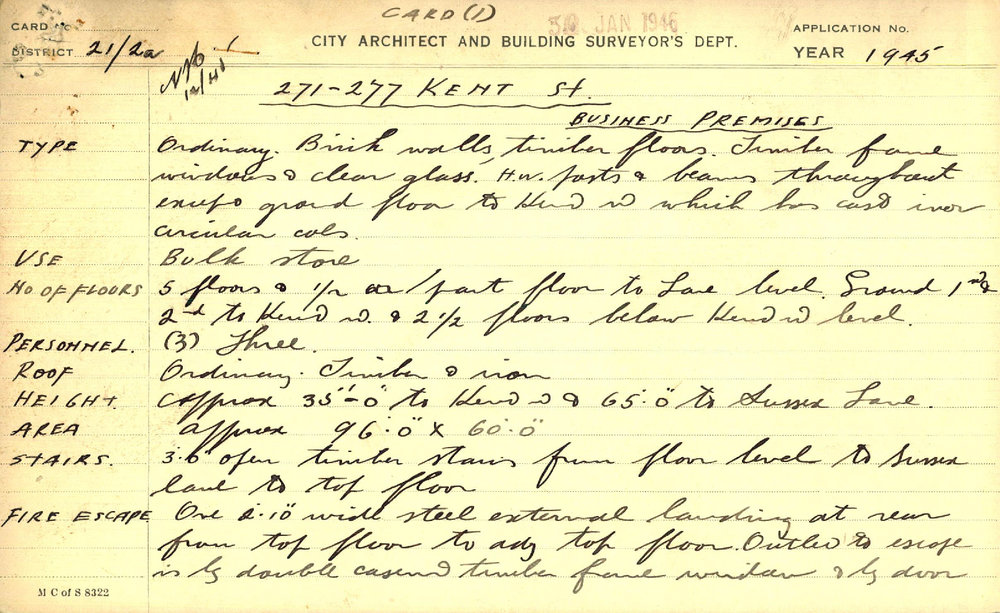 CARD (1)
30 JAN 1946
CARD No.
DISTRICT 21/2a
CITY ARCHITECT AND BUILDING SURVEYOR'S DEPT.
APPLICATION No.
YEAR 1945
12/41
271-277 KENT St.
BUSINESS PREMISES
TYPE Ordinary. Brick walls, timber floors. Timber frame
windows & clear glass. H.W. posts & beams throughout
except ground floor to Kent St which has cast iron
circular cols.
USE Bulk store
NO OF FLOORS 5 floors & 1/2 or part floor to Lane level. Ground 1st &
2nd to Kent St. & 2 1/2 floors below Kent St level.
PERSONNEL. (3) Three.
ROOF Ordinary. Timber & iron
HEIGHT. Approx 35'-0" to Kent St & 65'.0" to Sussex Lane.
AREA approx 96'.0" x 60'.0"
STAIRS. 3'.0" open timber stairs from floor level to Sussex
lane to top floor
FIRE ESCAPE One 2'.10" wide steel external landing at rear
from top floor to adj top floor. Outlet to escape
is by double casement timber frame window & by door
M C of S 8322